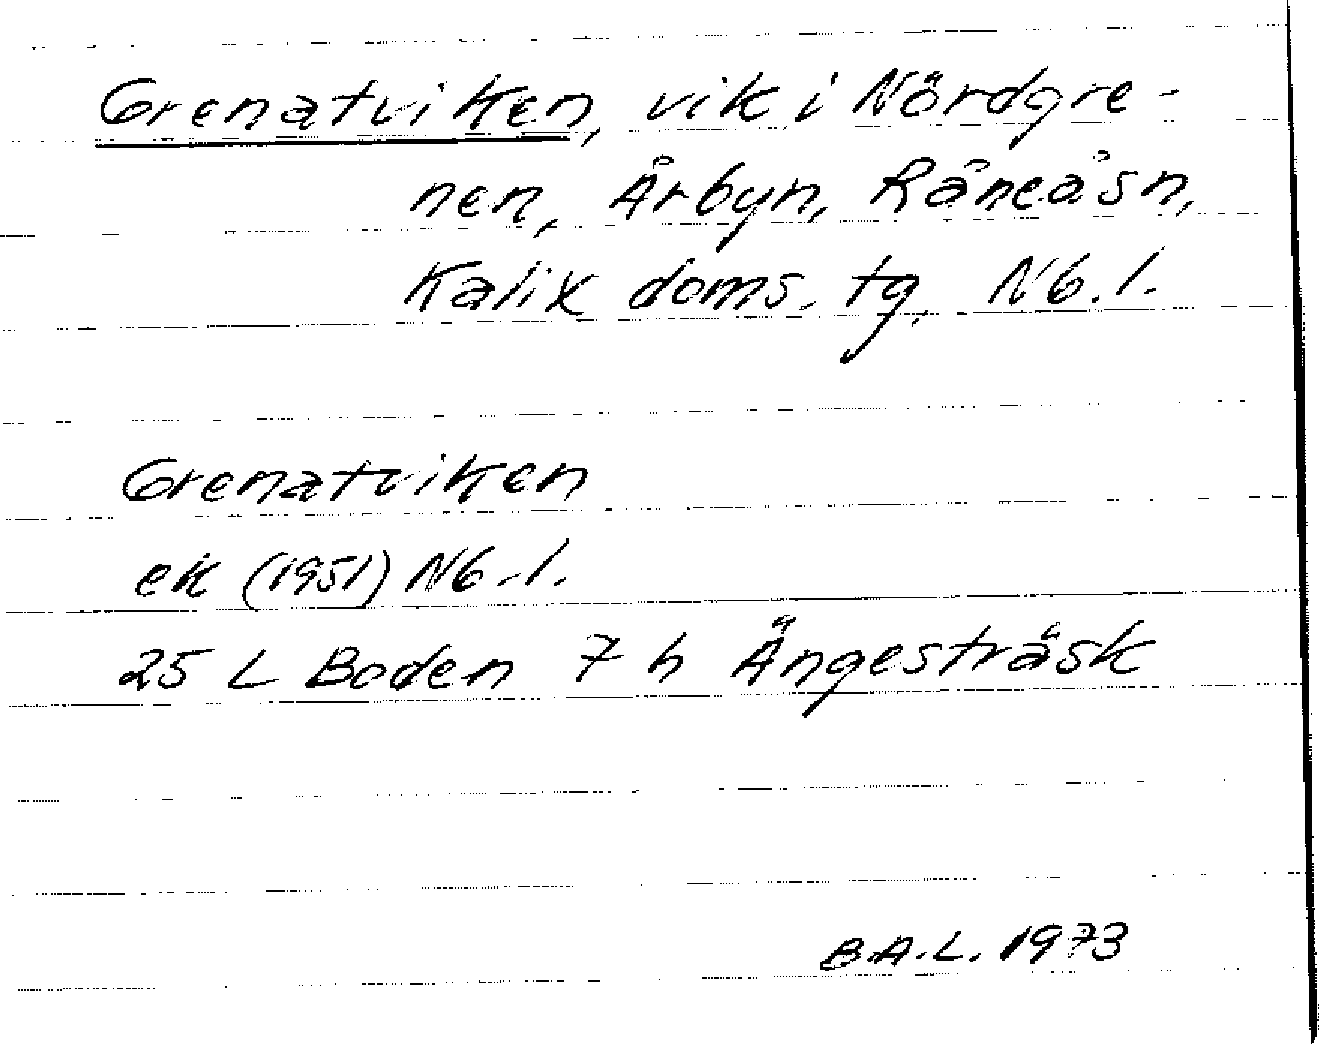 Grenatviken, vik i Nördgre-
nen, Årbyn, Råneå sn,
Kalix doms. tg, Nb. l.
Grenatviken
ek (1951) Nb. l.
25 L Boden 7 h Ängesträsk
B.A.L. 1973